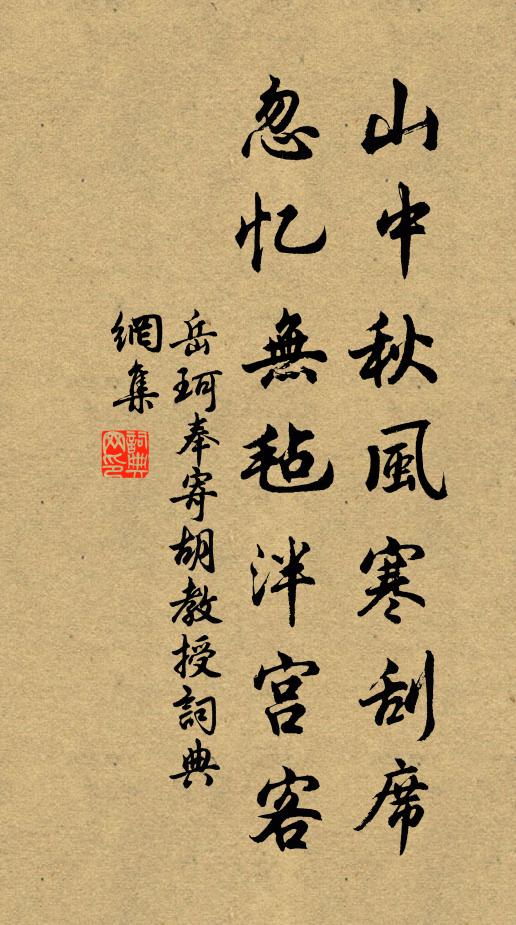 山中秋風寒刮席
忽忆無毡泮宫客
岳珂奉寄胡教授詞典
網集
詞典网印